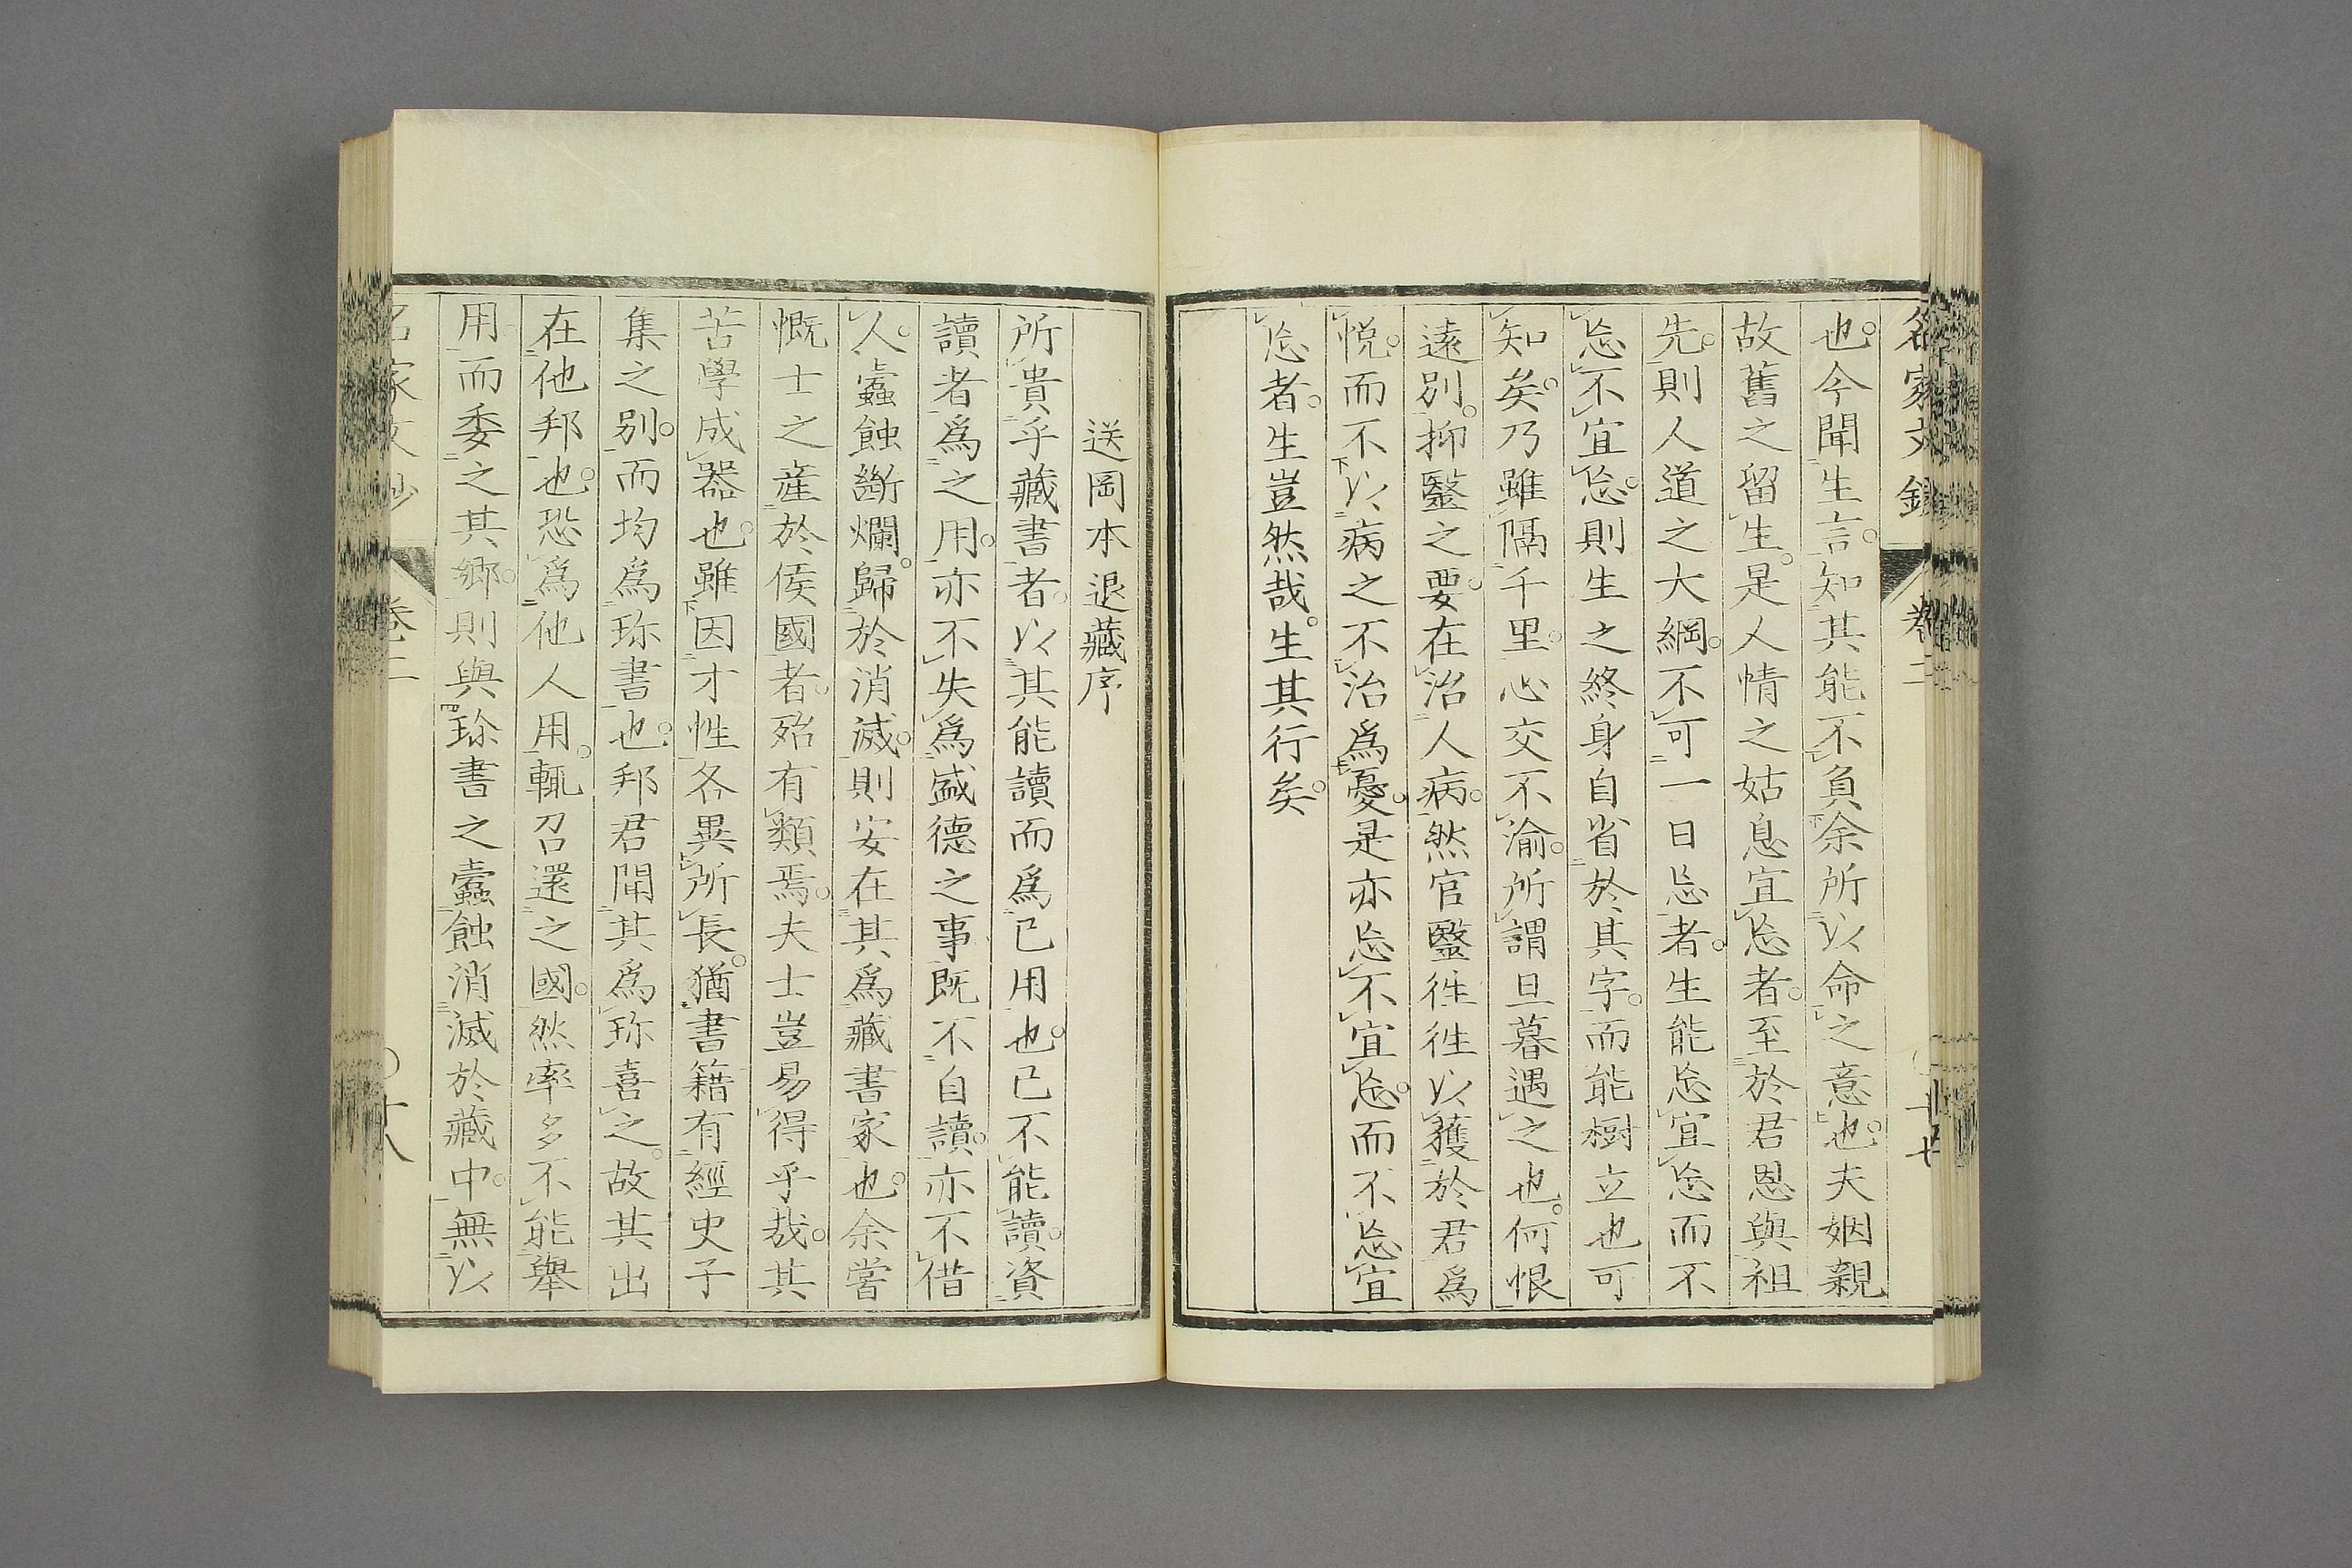 名家文鈔 卷二 十七
也。今聞生言。知其能不負余所以命之意也。夫姻親
故舊之留生。是人情之姑息宜忘者。至於君恩與祖
先。則人道之大綱。不可一日忘者。生能忘宜忘而不
忘不宜忘。則生之終身自省於其字。而能樹立也可
知矣。乃雖隔千里。心交不渝。所謂旦暮遇之也。何恨
遠別。抑醫之要。在治人病。然官醫往往以獲於君為
悅。而不以病之不治為憂。是亦忘不宜忘。而不忘宜
忘者。生豈然哉。生其行矣。
送岡本退藏序
所貴乎藏書者。以其能讀而為己用也。己不能讀。資
讀者為之用。亦不失為盛德之事。既不自讀。亦不借
人。蠹蝕斷爛。歸於消滅。則安在其為藏書家也。余嘗
慨士之產於侯國者。殆有類焉。夫士豈易得乎哉。其
苦學成器也。雖因才性各異所長。猶書籍有經史子
集之別。而均為珎書也。邦君聞其為珎喜之。故其出
在他邦也。恐為他人用。輒召還之國。然率多不能舉
用。而委之其鄉。則與珎書之蠹蝕消滅於藏中。無以
名家文鈔 卷二 十八